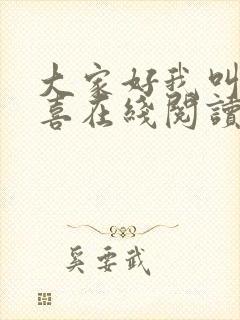 大家好我叫
喜在綫閱讀
奚要武